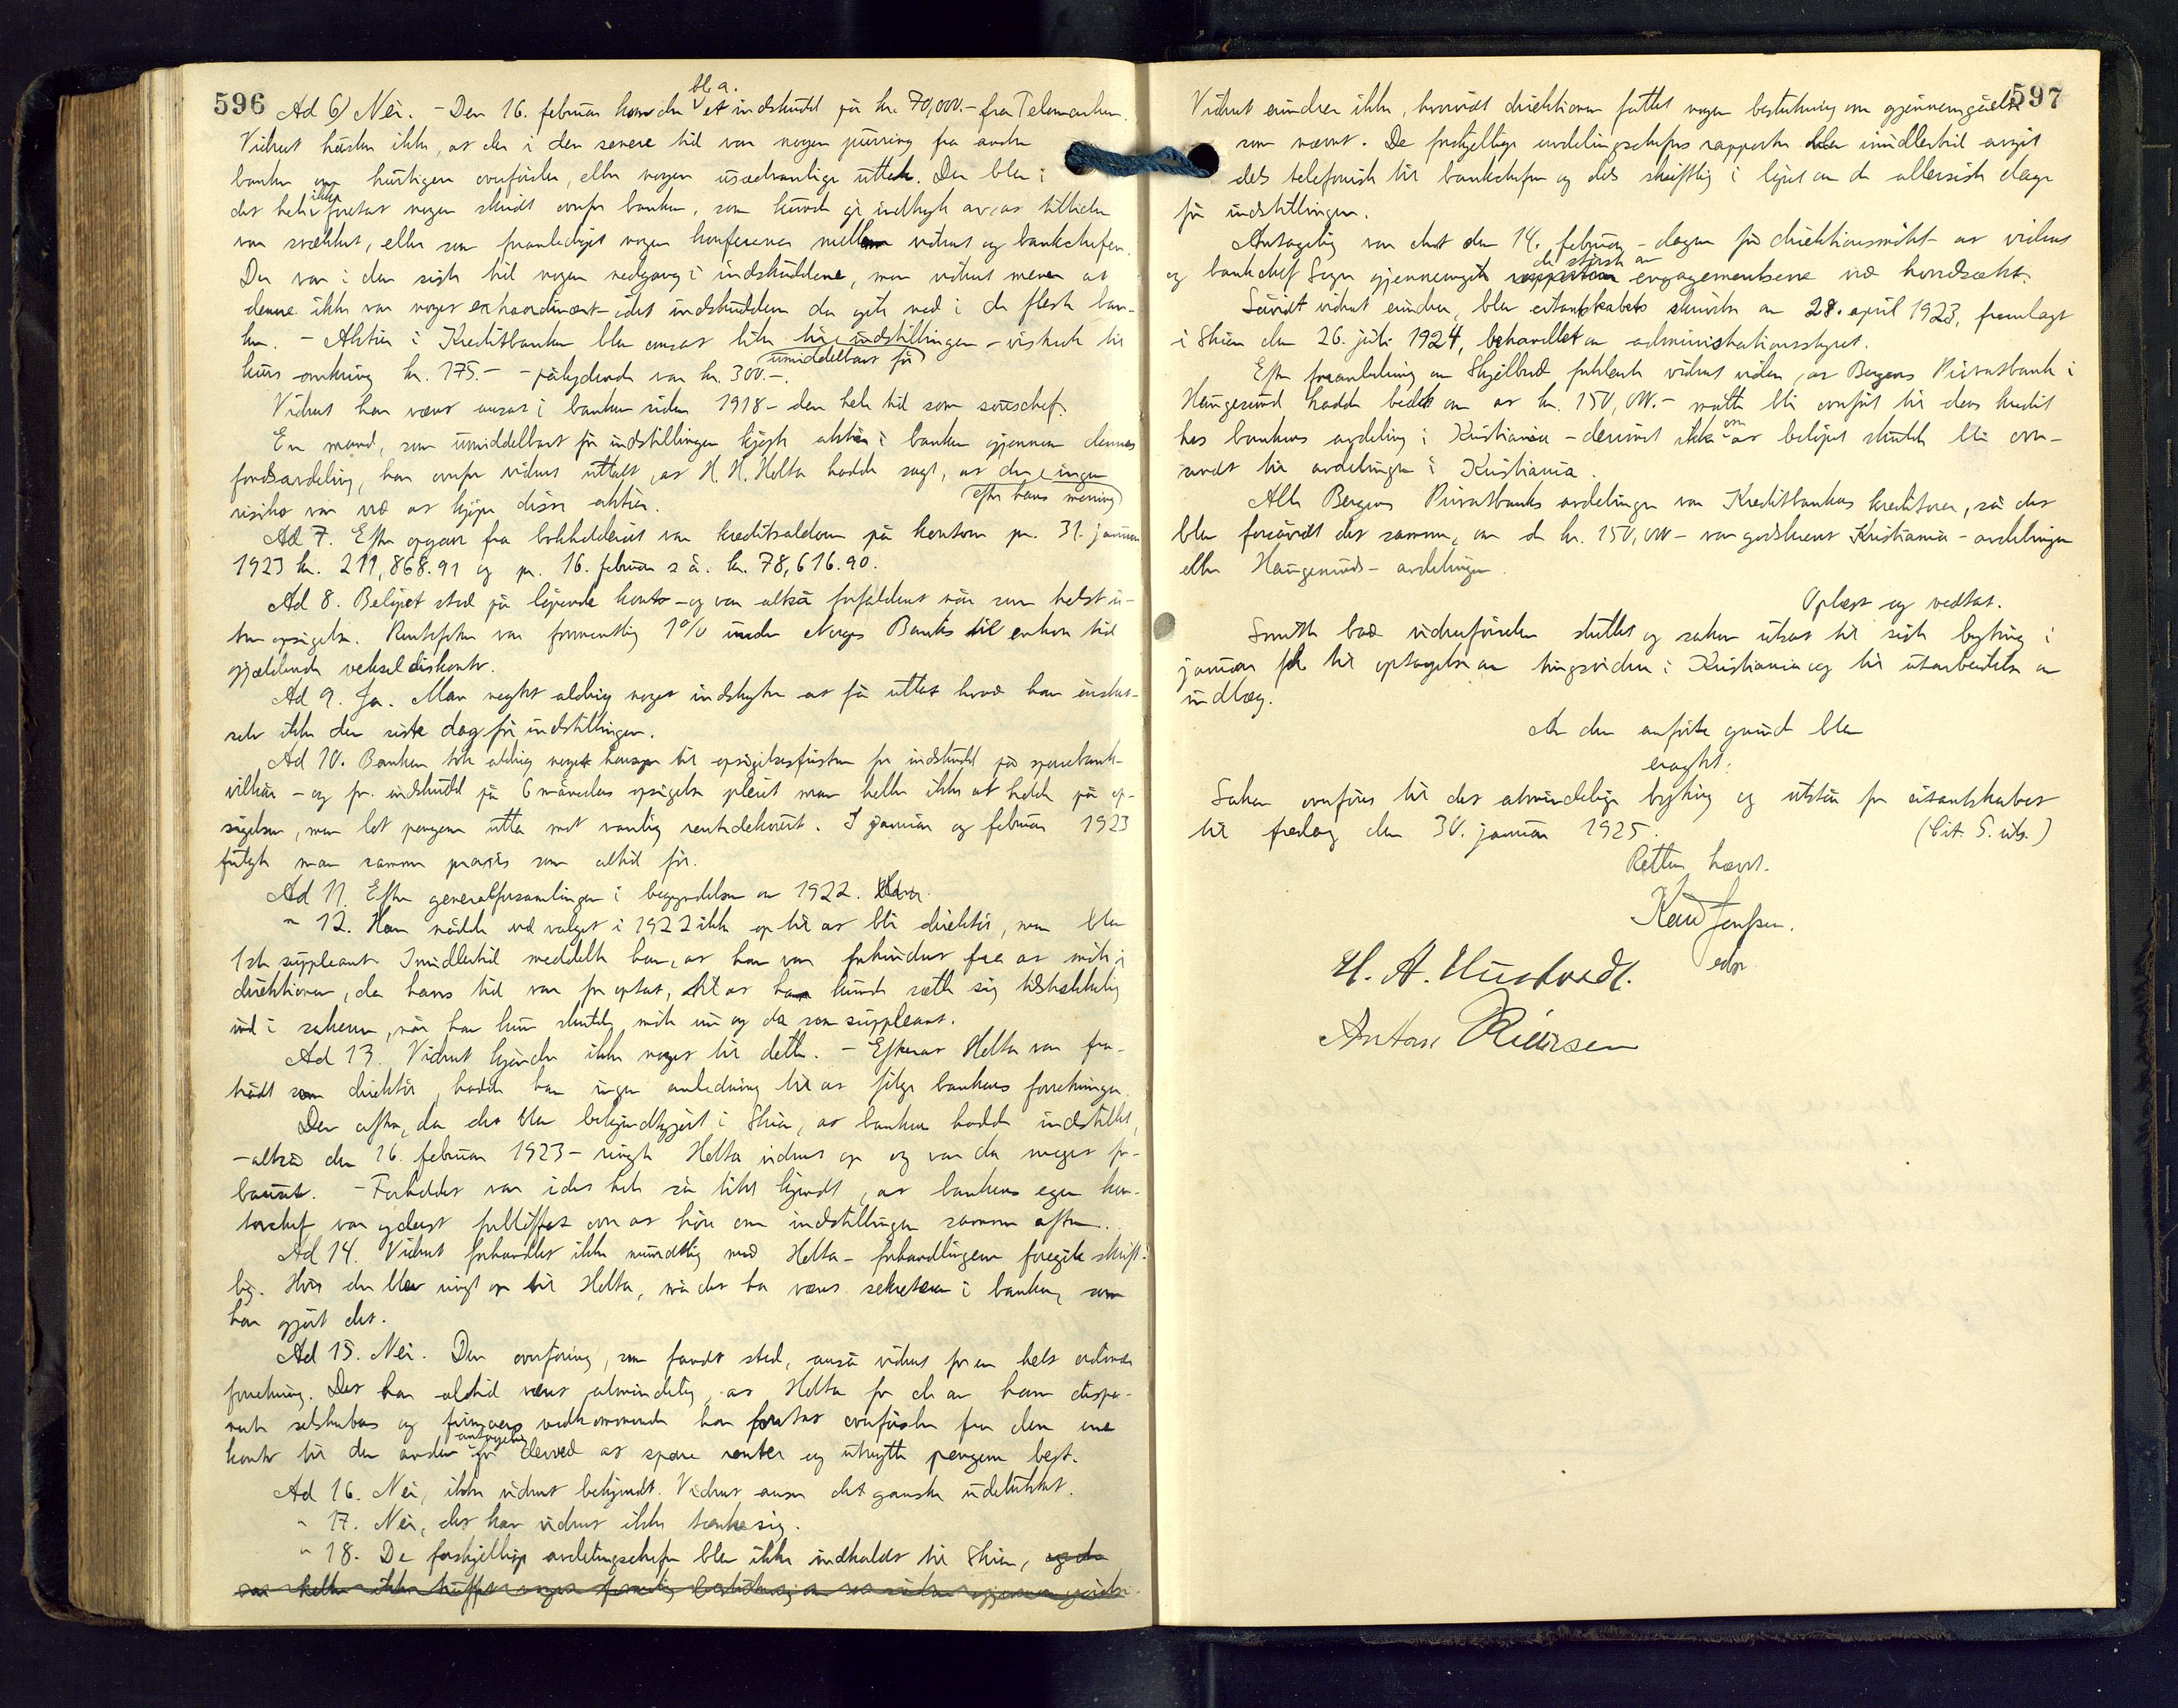 596
Ad 6) Nei. – Den 16. februar kom der bl. a. et indskudd på kr. 70,000.– fra Telemarken.
Vidnet husker ikke, at der i den senere tid var nogen purring fra andre
banker om hurtigere overførsler, eller nogen usedvanlige uttak. Der blev i
det hele ikke foretat noget skridt overfor banken, som kunde gi indtryk av, at tilliden
var svækket, eller som foranlediget nogen konferense mellem vidnet og bankchefen.
Der var i den siste tid nogen nedgang i indskuddene, men vidnet mener at
denne ikke var noget extraordinært – idet indskuddene da gik ned i de fleste ban-
ker. – Aktier i Kreditbanken blev omsat like til indstillingen – visstnok til
umiddelbart før
kurs omkring kr. 175.– – pålydende var kr. 300.–.
Vidnet har været ansat i banken siden 1918 – den hele tid som souschef.
En mand, som umiddelbart før indstillingen kjøpte aktier i banken gjennem dennes
fondsavdeling, har overfor vidnet uttalt, at H. H. Holta hadde sagt, at der ingen
efter hans mening
risiko var ved at kjøpe disse aktier.
Ad 7. Efter opgave fra bokholderiet var kreditsaldoen på kontoen pr. 31. januar
1923 kr. 211,868.91 og pr. 16. februar s å. kr. 78,616.90.
Ad 8. Beløpet stod på løpende konto – og var altså forfaldent når som helst u-
ten opsigelse. Rentefoten var formentlig 1% under Norges Banks til enhver tid
gjældende vekseldiskonto.
Ad 9. Ja. Man negtet aldrig noget indskyter at få uttat hvad han ønsket –
selv ikke den siste dag før indstillingen.
Ad 10. Banken tok aldrig noget hensyn til opsigelsesfristen for indskudd på sparebank-
vilkår – og for indskudd på 6 måneders opsigelse pleiet man heller ikke at holde på op-
sigelsen, men lot pengene utta mot vanlig rentedekort. I januar og februar 1923
fulgte man samme praxis som altid før.
Ad 11. Efter generalforsamlingen i begyndelsen av 1922.
" 12. Han nådde ved valget i 1922 ikke op til at bli direktør, men blev
1ste suppleant. Imidlertid meddelte han, at han var forhindret fra at møte i
direktionen, da hans tid var for optat, til at han kunde sætte sig tilstrækkelig
ind i sakene, når han kun skulde møte nu og da som suppleant.
Ad 13. Vidnet kjender ikke noget til dette. – Efterat Holta var fra-
trådt som direktør, hadde han ingen anledning til at følge bankens forretninger.
Den aften, da det blev bekjendtgjort i Skien, at banken hadde indstillet,
– altså den 16. februar 1923 – ringte Holta vidnet op og var da meget for-
bauset. – Forholdet var i det hele så litet kjendt, at bankens egen kon-
torchef var ytterst forbløffet over at høre om indstillingen samme aften.
Ad 14. Vidnet forhandlet ikke mundtlig med Holta – forhandlingene foregik skrift-
lig. Hvis der blev ringt op til Holta, må det ha været sekretæren i banken, som
har gjort det.
Ad 15. Nei. Den overføring, som fandt sted, anså vidnet for en helt ordinær
forretning. Det har altid været almindelig, at Holta for de av ham dispo-
nerte selskaber og firmaers vedkommende har foretat overførsler fra den ene
konto til den anden antagelig for derved at spare renter og utnytte pengene best.
Ad 16. Nei, ikke vidnet bekjendt. Vidnet anser det ganske udelukket.
" 17. Nei, det kan vidnet ikke tænke sig.
" 18. De forskjellige avdelingschefer blev ikke indkaldt til Skien, og der
var heller ikke truffet nogen formelig beslutning om en sådan gjennemgåelse.
597
Vidnet erindrer ikke, hvorvidt direktionen fattet nogen beslutning om gjennemgåelse
som nævnt. De forskjellige avdelingschefers rapporter blev imidlertid avgit
dels telefonisk til bankchefen og dels skriftlig i løpet av de allersiste dager
før indstillingen.
Antagelig var det den 14. februar – dagen før direktionsmøtet – at vidnet
de største av
og bankchef Sogn gjennemgik engagementsene ved hovedsætet.
Såvidt vidnet erindrer, blev citantskabets skrivelse av 28. april 1923, fremlagt
i Skien den 26. juli 1924, behandlet av administrationsstyret.
Efter foranledning av Skjelbred forklarte vidnet videre, at Bergens Privatbank i
Haugesund hadde bedt om at kr. 150,000.– måtte bli overført til dens kredit
hos bankens avdeling i Kristiania – derimot ikke om at beløpet skulde bli over-
sendt til avdelingen i Kristiania.
Alle Bergens Privatbanks avdelinger var Kreditbankens kreditorer, så det
blev forsåvidt det samme, om de kr. 150,000 – var godskrevet Kristiania-avdelingen
eller Haugesunds-avdelingen.
Oplæst og vedtat.
Smith bad vidneførselen sluttet og saken utsat til siste bytting i
januar for til optagelse av tingsvidne i Kristiania og til utarbeidelse av
indlæg.
Av den anførte grund blev
eragtet:
Saken overføres til det almindelige bytting og utstår for citantskabet
til fredag den 30. januar 1925. (Cit. S. uts.)
Retten hævet.
Knud Jenssen.
edsv.
H. A. Hustvedt.
Anton Riversen